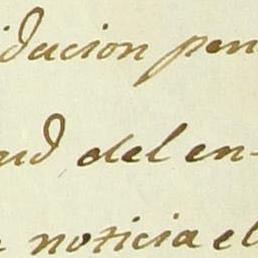 idacion pen
ud del en-
noticia el